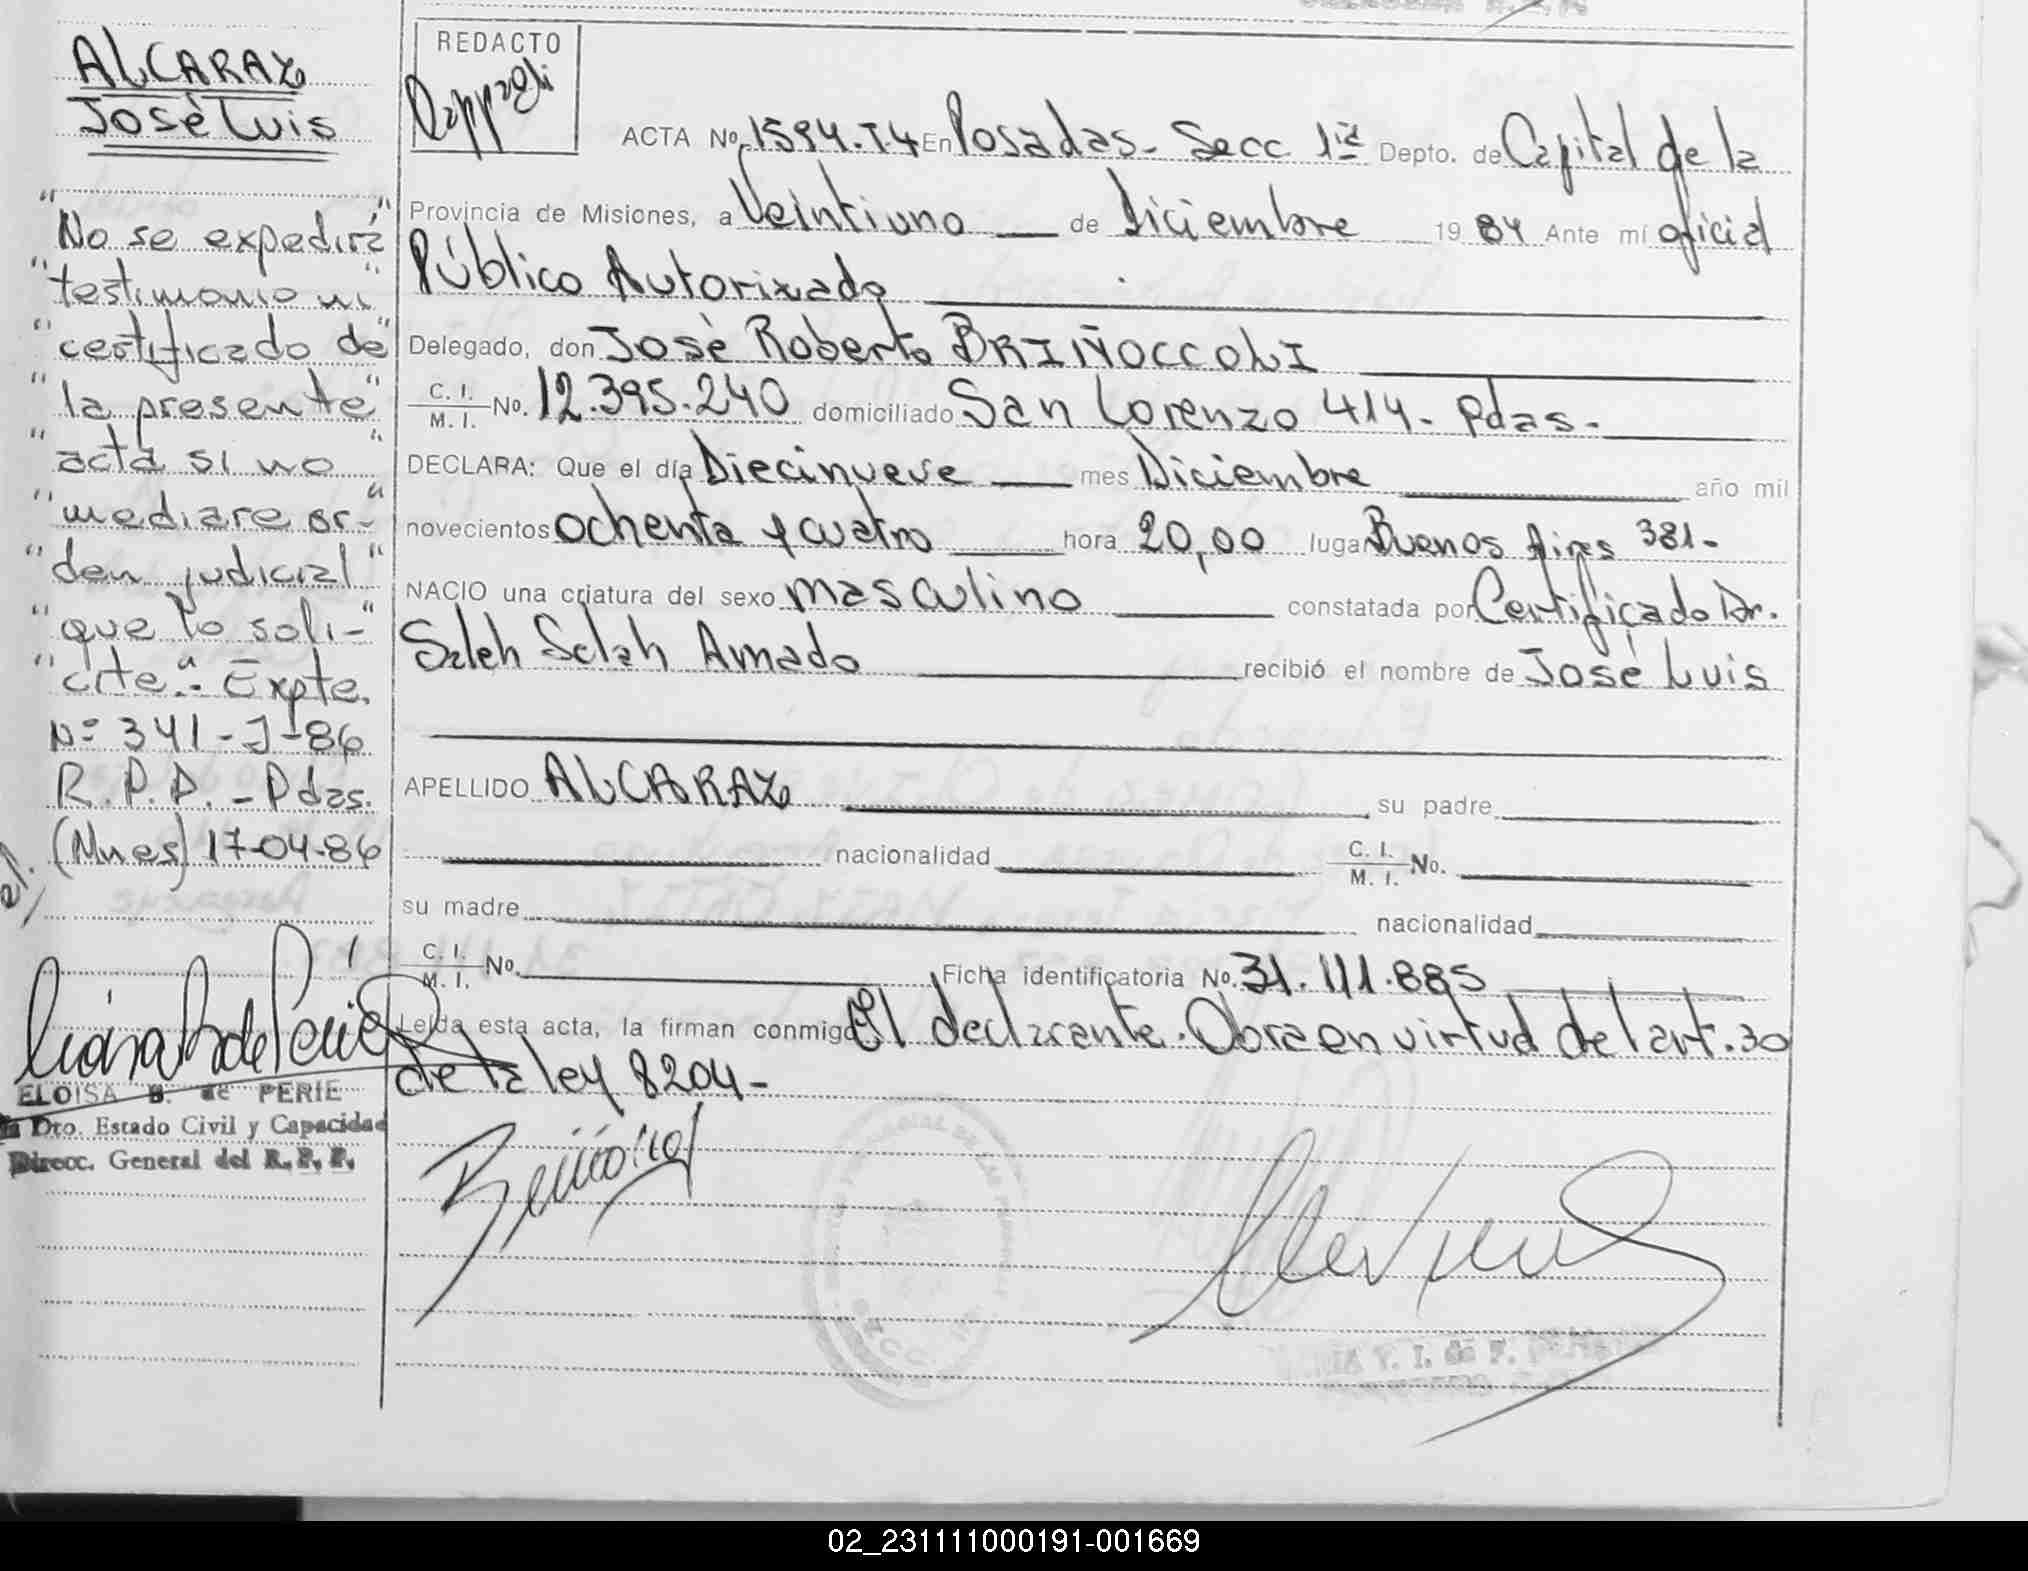 ALCARAZ
José Luis
"No se expedirá"
"testimonio ni"
"certificado de"
"la presente"
"acta si no"
"mediare or-"
"den judicial"
"que lo soli-"
"cite". - Expte.
Nº 341-J-86
R.P.P. - Pdas.
(Mnes) 17-04-86
ELOISA B. de PERIE
Dto. Estado Civil y Capacidad
Direcc. General del R. P. P.
REDACTO
ACTA No. 1594. T4 En Posadas - Secc 1ra Depto. de Capital de la
Provincia de Misiones, a Veintiuno de Diciembre 1984 Ante mí oficial
Público Autorizado
Delegado, don José Roberto BRIÑOCCOLI
C. I. / M. I. No. 12.395.240 domiciliado San Lorenzo 414 - Pdas.
DECLARA: Que el día Diecinueve mes Diciembre año mil
novecientos ochenta y cuatro hora 20,00 lugar Buenos Aires 381-
NACIO una criatura del sexo masculino constatada por Certificado Dr.
Saleh Salah Amado recibió el nombre de José Luis
APELLIDO ALCARAZ su padre
nacionalidad C. I. / M. I. No.
su madre nacionalidad
C. I. / M. I. No. Ficha identificatoria No. 31.111.885
Leída esta acta, la firman conmigo El declarante. Obra en virtud del art. 30
de la ley 8204-
02_231111000191-001669